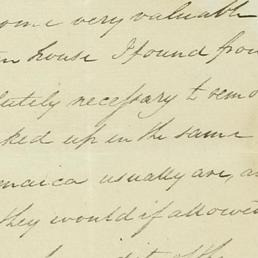 some very valuable
house I found from
lutely necessary to remo
ked up in the same
maica usually are, a
they would if allowed
it of the